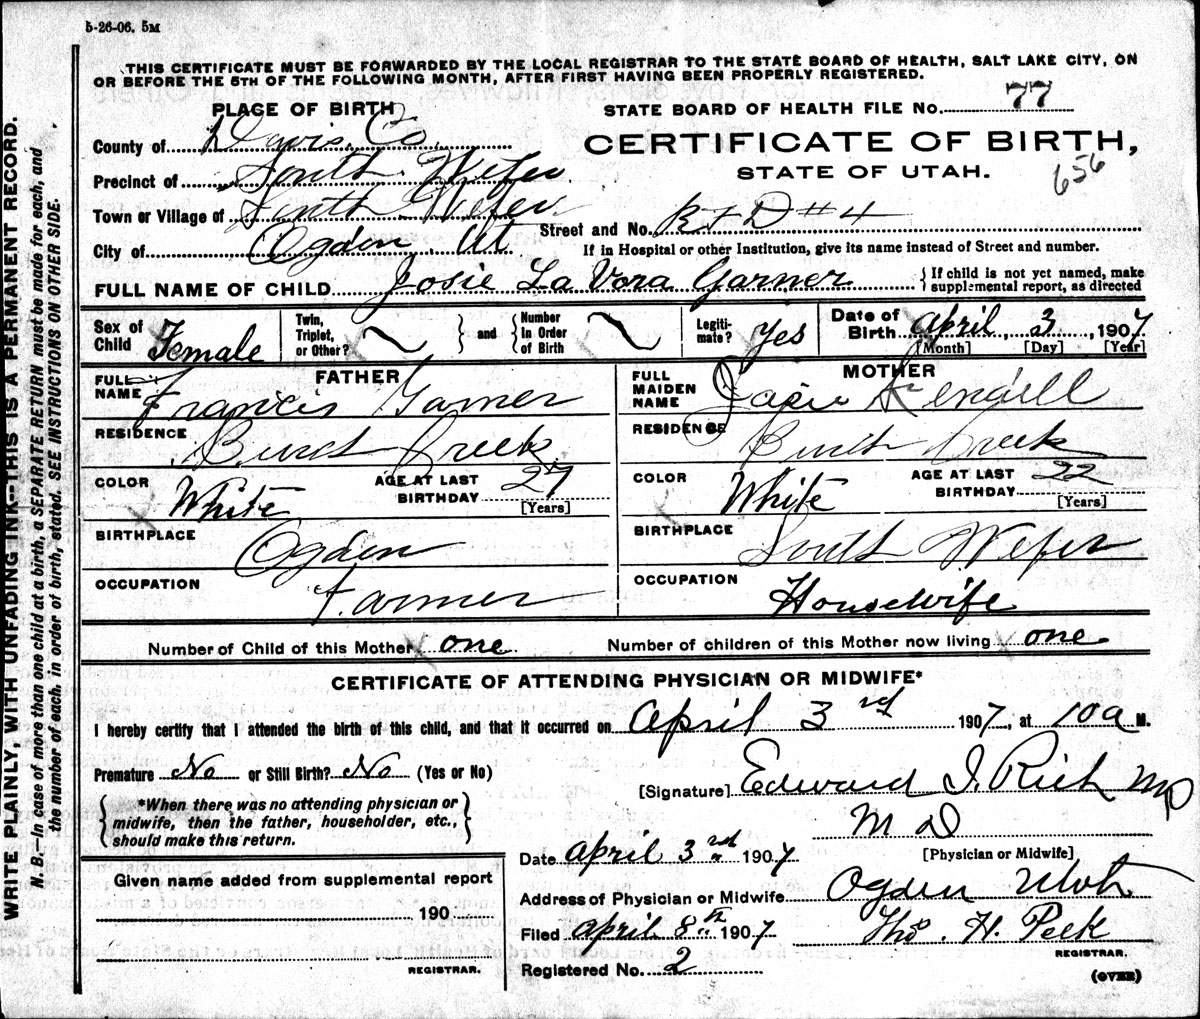 5-26-06. 5M
THIS CERTIFICATE MUST BE FORWARDED BY THE LOCAL REGISTRAR TO THE STATE BOARD OF HEALTH, SALT LAKE CITY, ON
OR BEFORE THE 5TH OF THE FOLLOWING MONTH, AFTER FIRST HAVING BEEN PROPERLY REGISTERED.
PLACE OF BIRTH
STATE BOARD OF HEALTH FILE NO. 77
County of Davis Co.
CERTIFICATE OF BIRTH,
STATE OF UTAH.
656
Precinct of South Weber
Town or Village of South Weber
Street and No. RFD #4
City of Ogden Ut
If in Hospital or other Institution, give its name instead of Street and number.
FULL NAME OF CHILD Josie La Vora Garner
{If child is not yet named, make
supplemental report, as directed
Sex of Child Female
Twin, Triplet, or Other?
and
Number In Order of Birth
Legiti-mate? Yes
Date of Birth April 3, 1907
[Month] [Day] [Year]
FATHER
FULL NAME Francis Garner
RESIDENCE Burch Creek
COLOR White
AGE AT LAST BIRTHDAY 27
[Years]
BIRTHPLACE Ogden
OCCUPATION Farmer
MOTHER
FULL MAIDEN NAME Josie Kendell
RESIDENCE Burch Creek
COLOR White
AGE AT LAST BIRTHDAY 22
[Years]
BIRTHPLACE South Weber
OCCUPATION Housewife
Number of Child of this Mother one
Number of children of this Mother now living one
CERTIFICATE OF ATTENDING PHYSICIAN OR MIDWIFE*
I hereby certify that I attended the birth of this child, and that it occurred on April 3rd 1907, at 10a M.
Premature No or Still Birth? No (Yes or No)
[Signature] Edward I. Rich MD
{*When there was no attending physician or
midwife, then the father, householder, etc.,
should make this return.}
M D
[Physician or Midwife]
Date April 3rd 1907
Given name added from supplemental report
190
REGISTRAR.
Address of Physician or Midwife Ogden Utah
Filed April 8th 1907
Thos. H. Peek
REGISTRAR.
Registered No. 2
(OVER)
WRITE PLAINLY, WITH UNFADING INK--THIS IS A PERMANENT RECORD.
N. B.—In case of more than one child at a birth, a SEPARATE RETURN must be made for each, and
the number of each, in order of birth, stated. SEE INSTRUCTIONS ON OTHER SIDE.